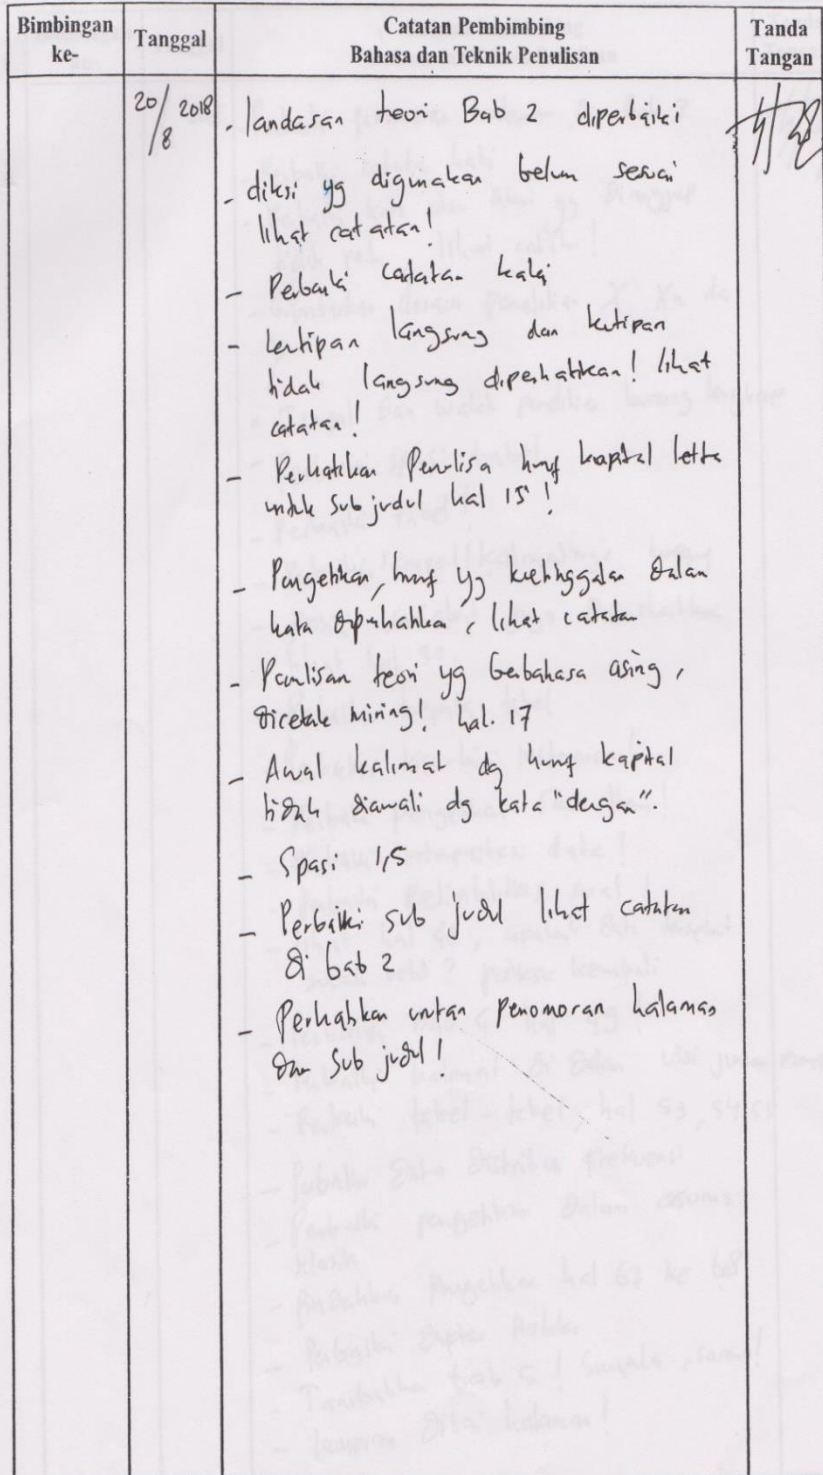 Bimbingan ke-
Tanggal
Catatan Pembimbing
Bahasa dan Teknik Penulisan
Tanda Tangan
20/8 2018
- landasan teori Bab 2 diperbaiki
- diksi yg digunakan belum sesuai
lihat catatan!
- Perbaiki catatan kaki
- kutipan langsung dan kutipan
tidak langsung diperhatikan! lihat
catatan!
- Perhatikan Penulisa huruf kapital
untuk sub judul hal 15!
- Pengetikan, huruf yg ketinggalan dalam
kata diperhatikan, lihat catatan
- Penulisan teori yg berbahasa asing,
dicetak miring! hal. 17
- Awal kalimat dg huruf kapital
tidak diawali dg kata "dengan".
- Spasi 1,5
- Perbaiki sub judul lihat catatan
di bab 2
- Perhatikan urutan penomoran halaman
dan sub judul!